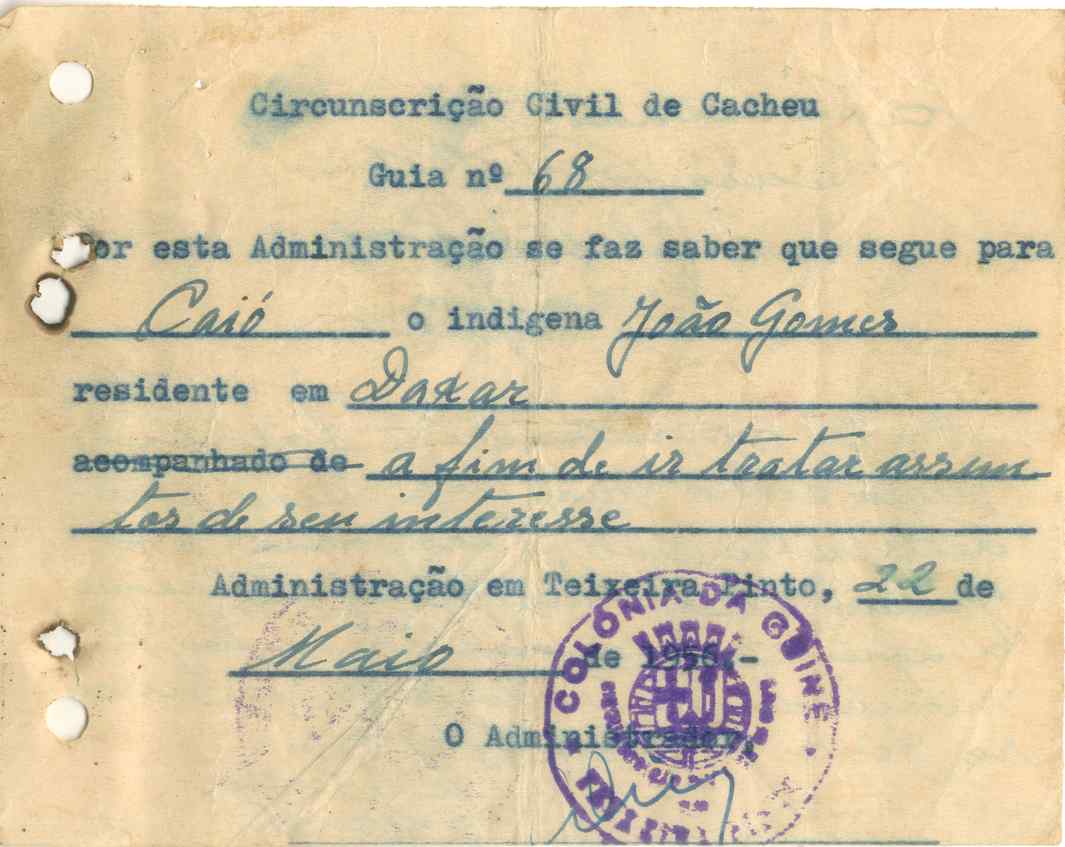 Circunscrição Civil de Cacheu
Guia nº 68
Por esta Administração se faz saber que segue para
Caió o indigena João Gomes
residente em Daxar
acompanhado de a fim de ir tratar assun
tos de seu interesse
Administração em Teixeira Pinto, 22 de
Maio de 195
O Administrador,
COLÓNIA DA GUINÉ